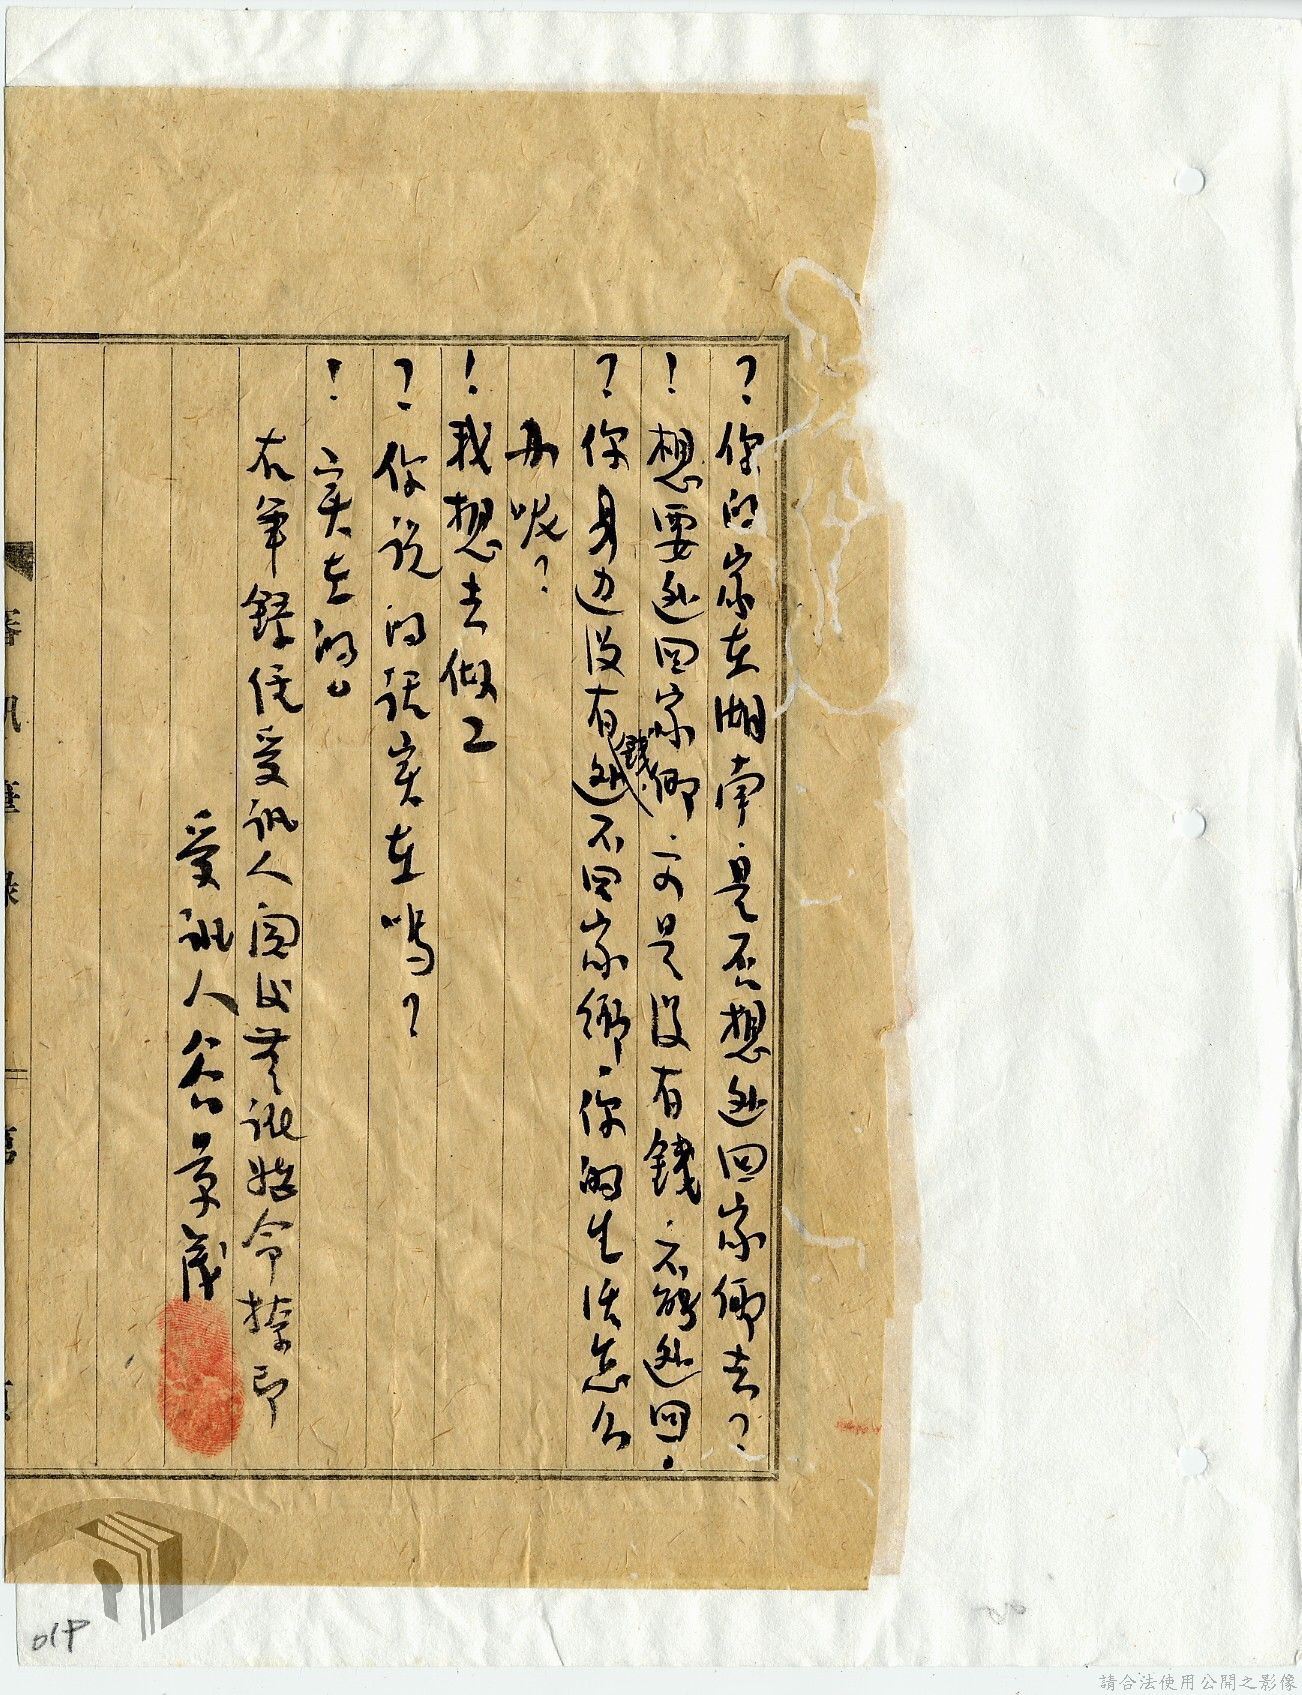 ？你的家在湖南，是否想返回家鄉去？
！想要返回家鄉，可是沒有錢，不能返回。
？你身边沒有錢返不回家鄉，你的生活怎么
办呢？
！我想去做工
？你说的話实在嗎？
！实在的。
右筆錄經受訊人閱後無訛始令捺印
受訊人 景茂
審訊筆錄
019
請合法使用公開之影像